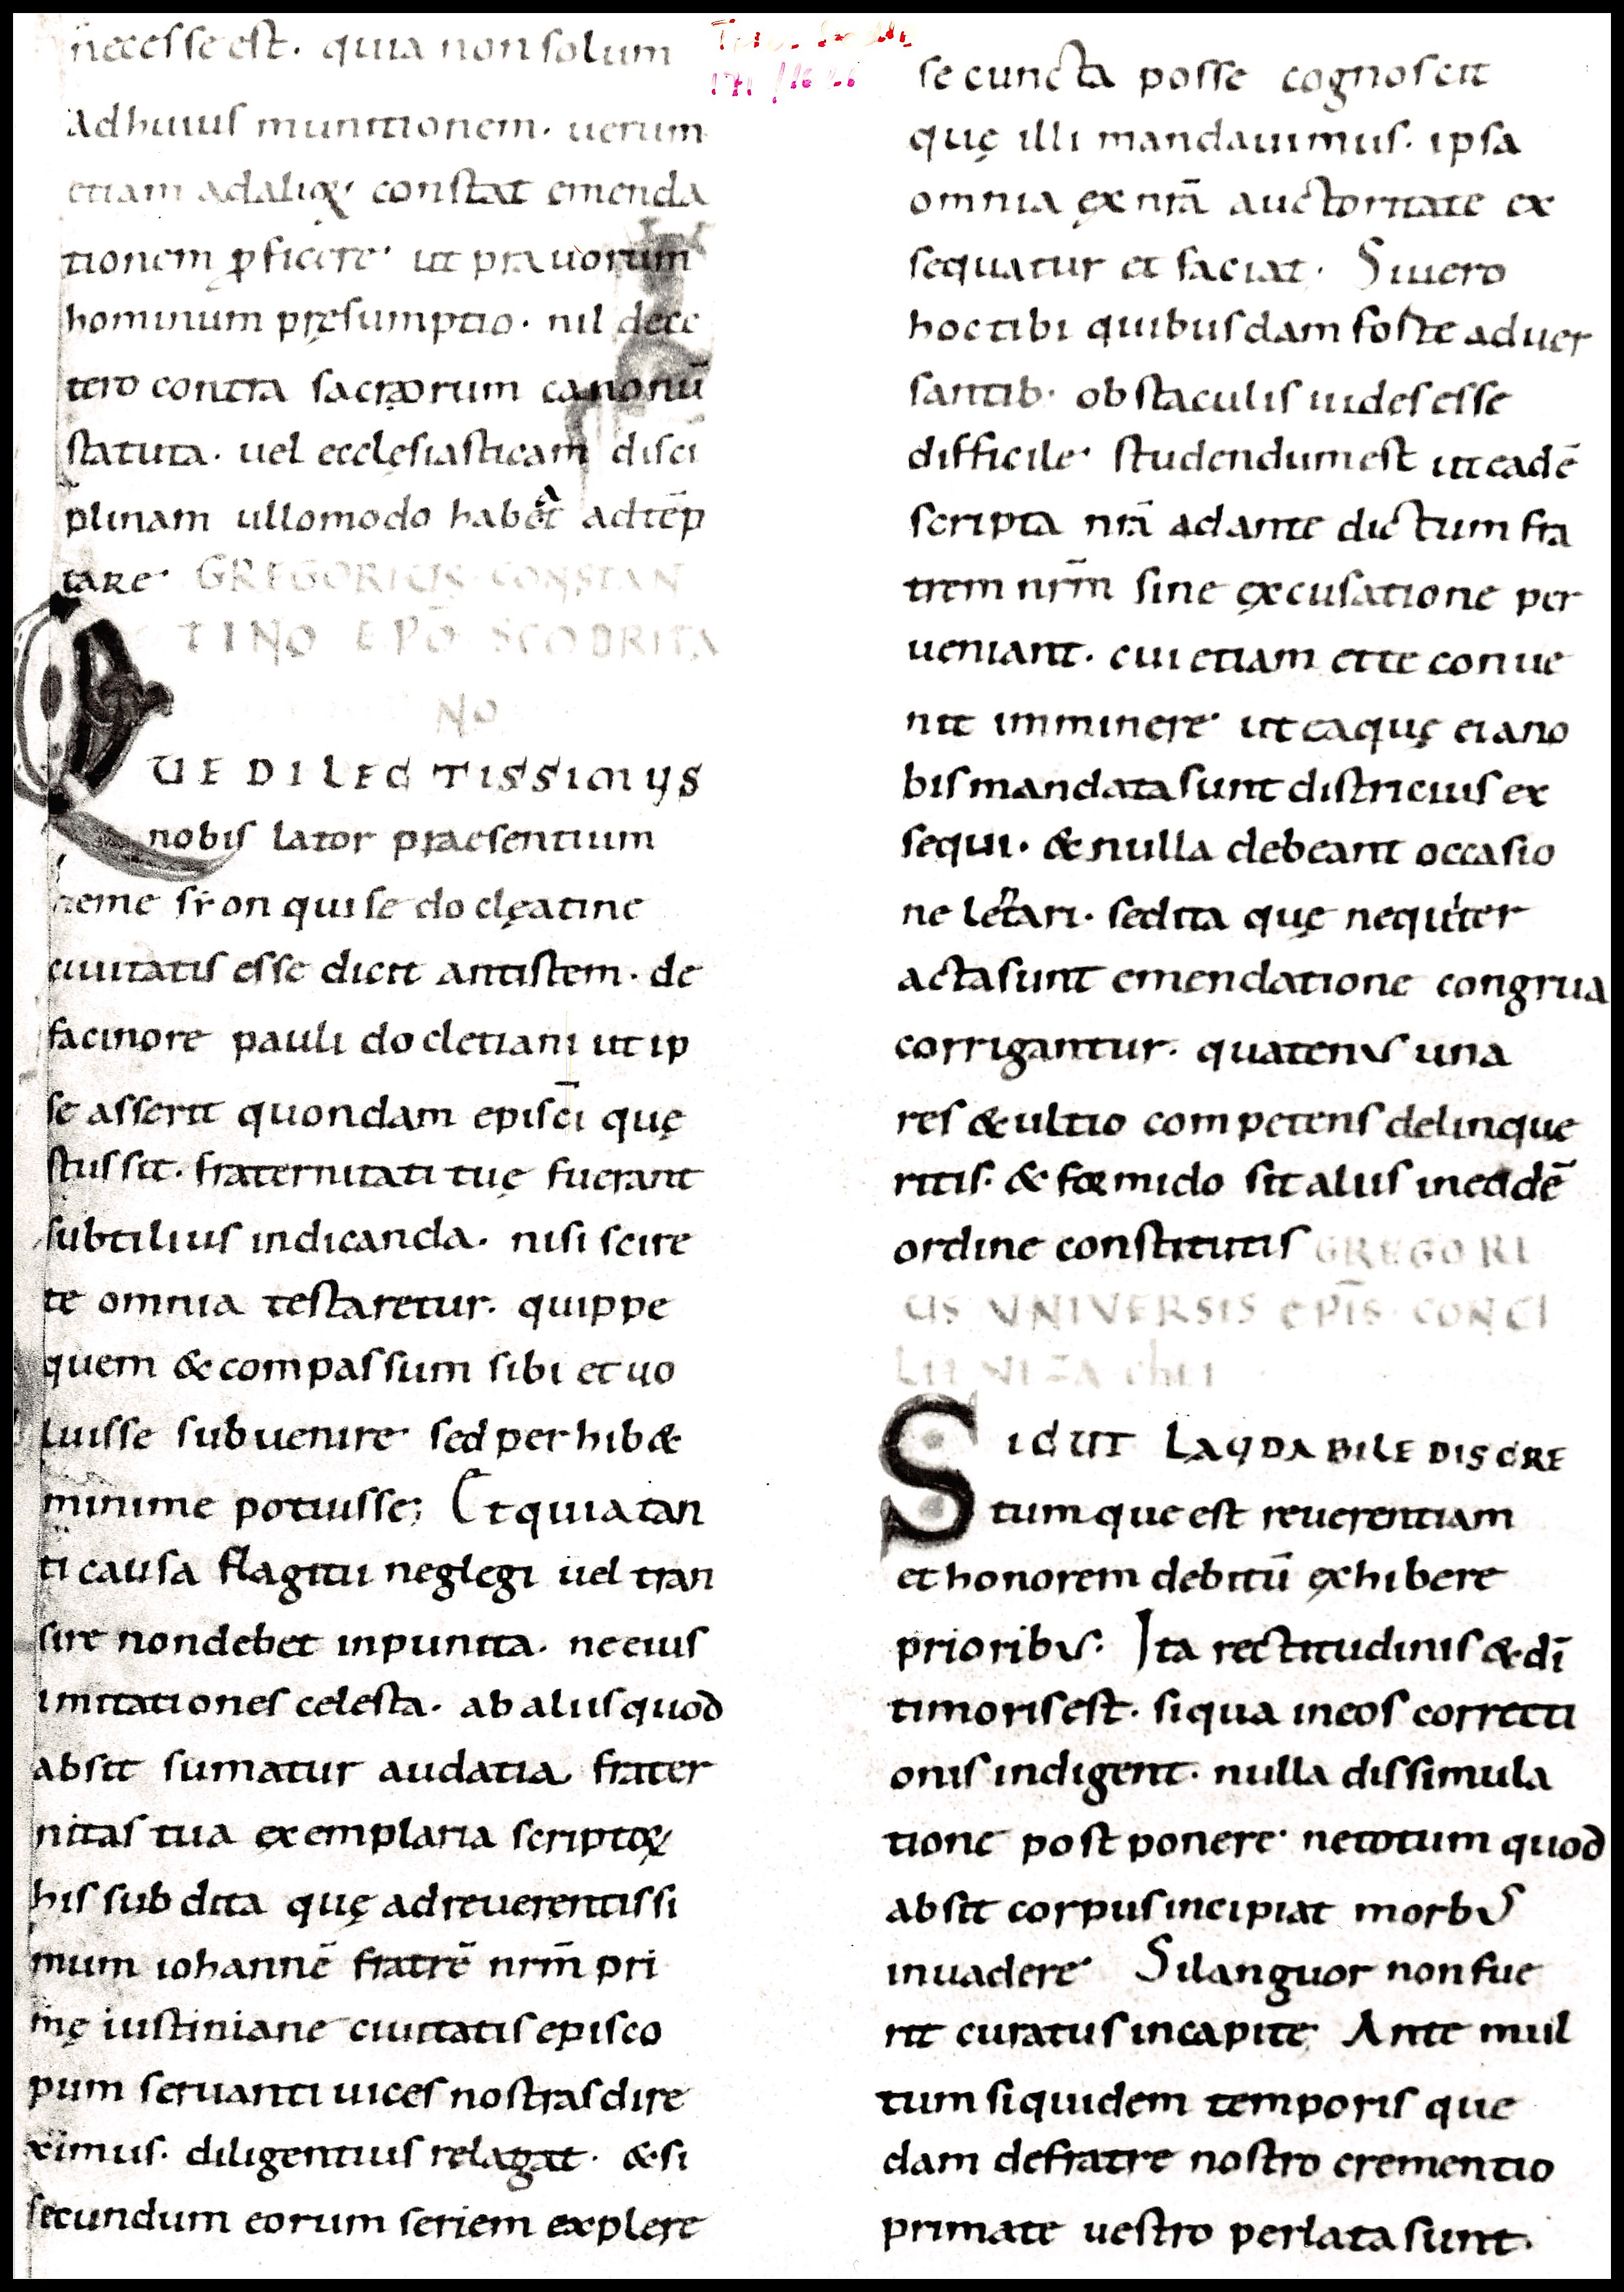 necesse est. quia non solum
ad huius munitionem. uerum
etiam ad alioꝝ constat emenda
tionem ꝓficere. ut prauorum
hominum pręsumptio. nil dece
tero contra sacrorum canonū
statuta. uel ecclęsiasticam disci
plinam ullomodo habeat adtēp
tare. GREGORIUS CONSTAN
TINO EPŌ SCODRITA
NO
QUE DILECTISSIMUS
nobis lator praesentium
neme sr̄ on qui se docleatine
ciuitatis esse dicit antistem. de
facinore pauli docletiani ut ip
se asserit quondam episcī quę
stus sit. fraternitati tuę fuerant
subtilius indicanda. nisi scire
te omnia testaretur. quippe
quem & compassum sibi et uo
luisse subuenire. sed perhib&
minime potuisse; Et quia tan
ti causa flagitii neglegi uel tran
sire non debet inpunita. ne eius
imitationes celesta. ab aliis quod
absit sumatur audatia frater
nitas tua exemplaria scriptoꝝ
his subdita quę ad reuerentissi
mum iohannē fratrē nr̄m pri
mę iustiniane ciuitatis episco
pum seruanti uices nostras dire
ximus. diligentius relagat. & si
secundum eorum seriem explere
se cuncta posse cognoscit
quę illi mandauimus. ipsa
omnia ęx nrā auctoritate ex
sequatur et faciat. Si uero
hoc tibi quibusdam foste aduer
santib. obstaculis uides esse
difficile. studendum est ut eadē
scripta nrā ad ante dictum fra
trem nr̄m sine ęxcusatione per
ueniant. cui etiam et te conue
nit imminere. ut ea quę ei a no
bis mandata sunt districius ex
sequi. & nulla debeant occasio
ne letari. sed ita quę nequiter
acta sunt emendatione congrua
corrigantur. quatenus una
res & ultio competens delinque
ritis. & formido sit aliis in eadē
ordine constitutis GREGORI
US UNIVERSIS EPĪS CONCI
LII
SICUT LAUDABILE DISCRE
tumque est reuerentiam
et honorem debitū ęxhibere
prioribus. Ita rectitudinis & dī
timoris est. si qua in eos correcti
onis indigent. nulla dissimula
tione postponere. ne totum quod
absit corpus incipiat morbus
inuadere. Si languor non fue
rit curatus in capite. Ante mul
tum siquidem temporis que
dam de fratre nostro crementio
primate uestro perlata sunt.